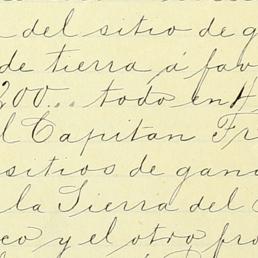 del sitio de g
de tierra á fav
200... todo en
Capitan Fr
sitios de gana
la Sierra del
co y el otro fro